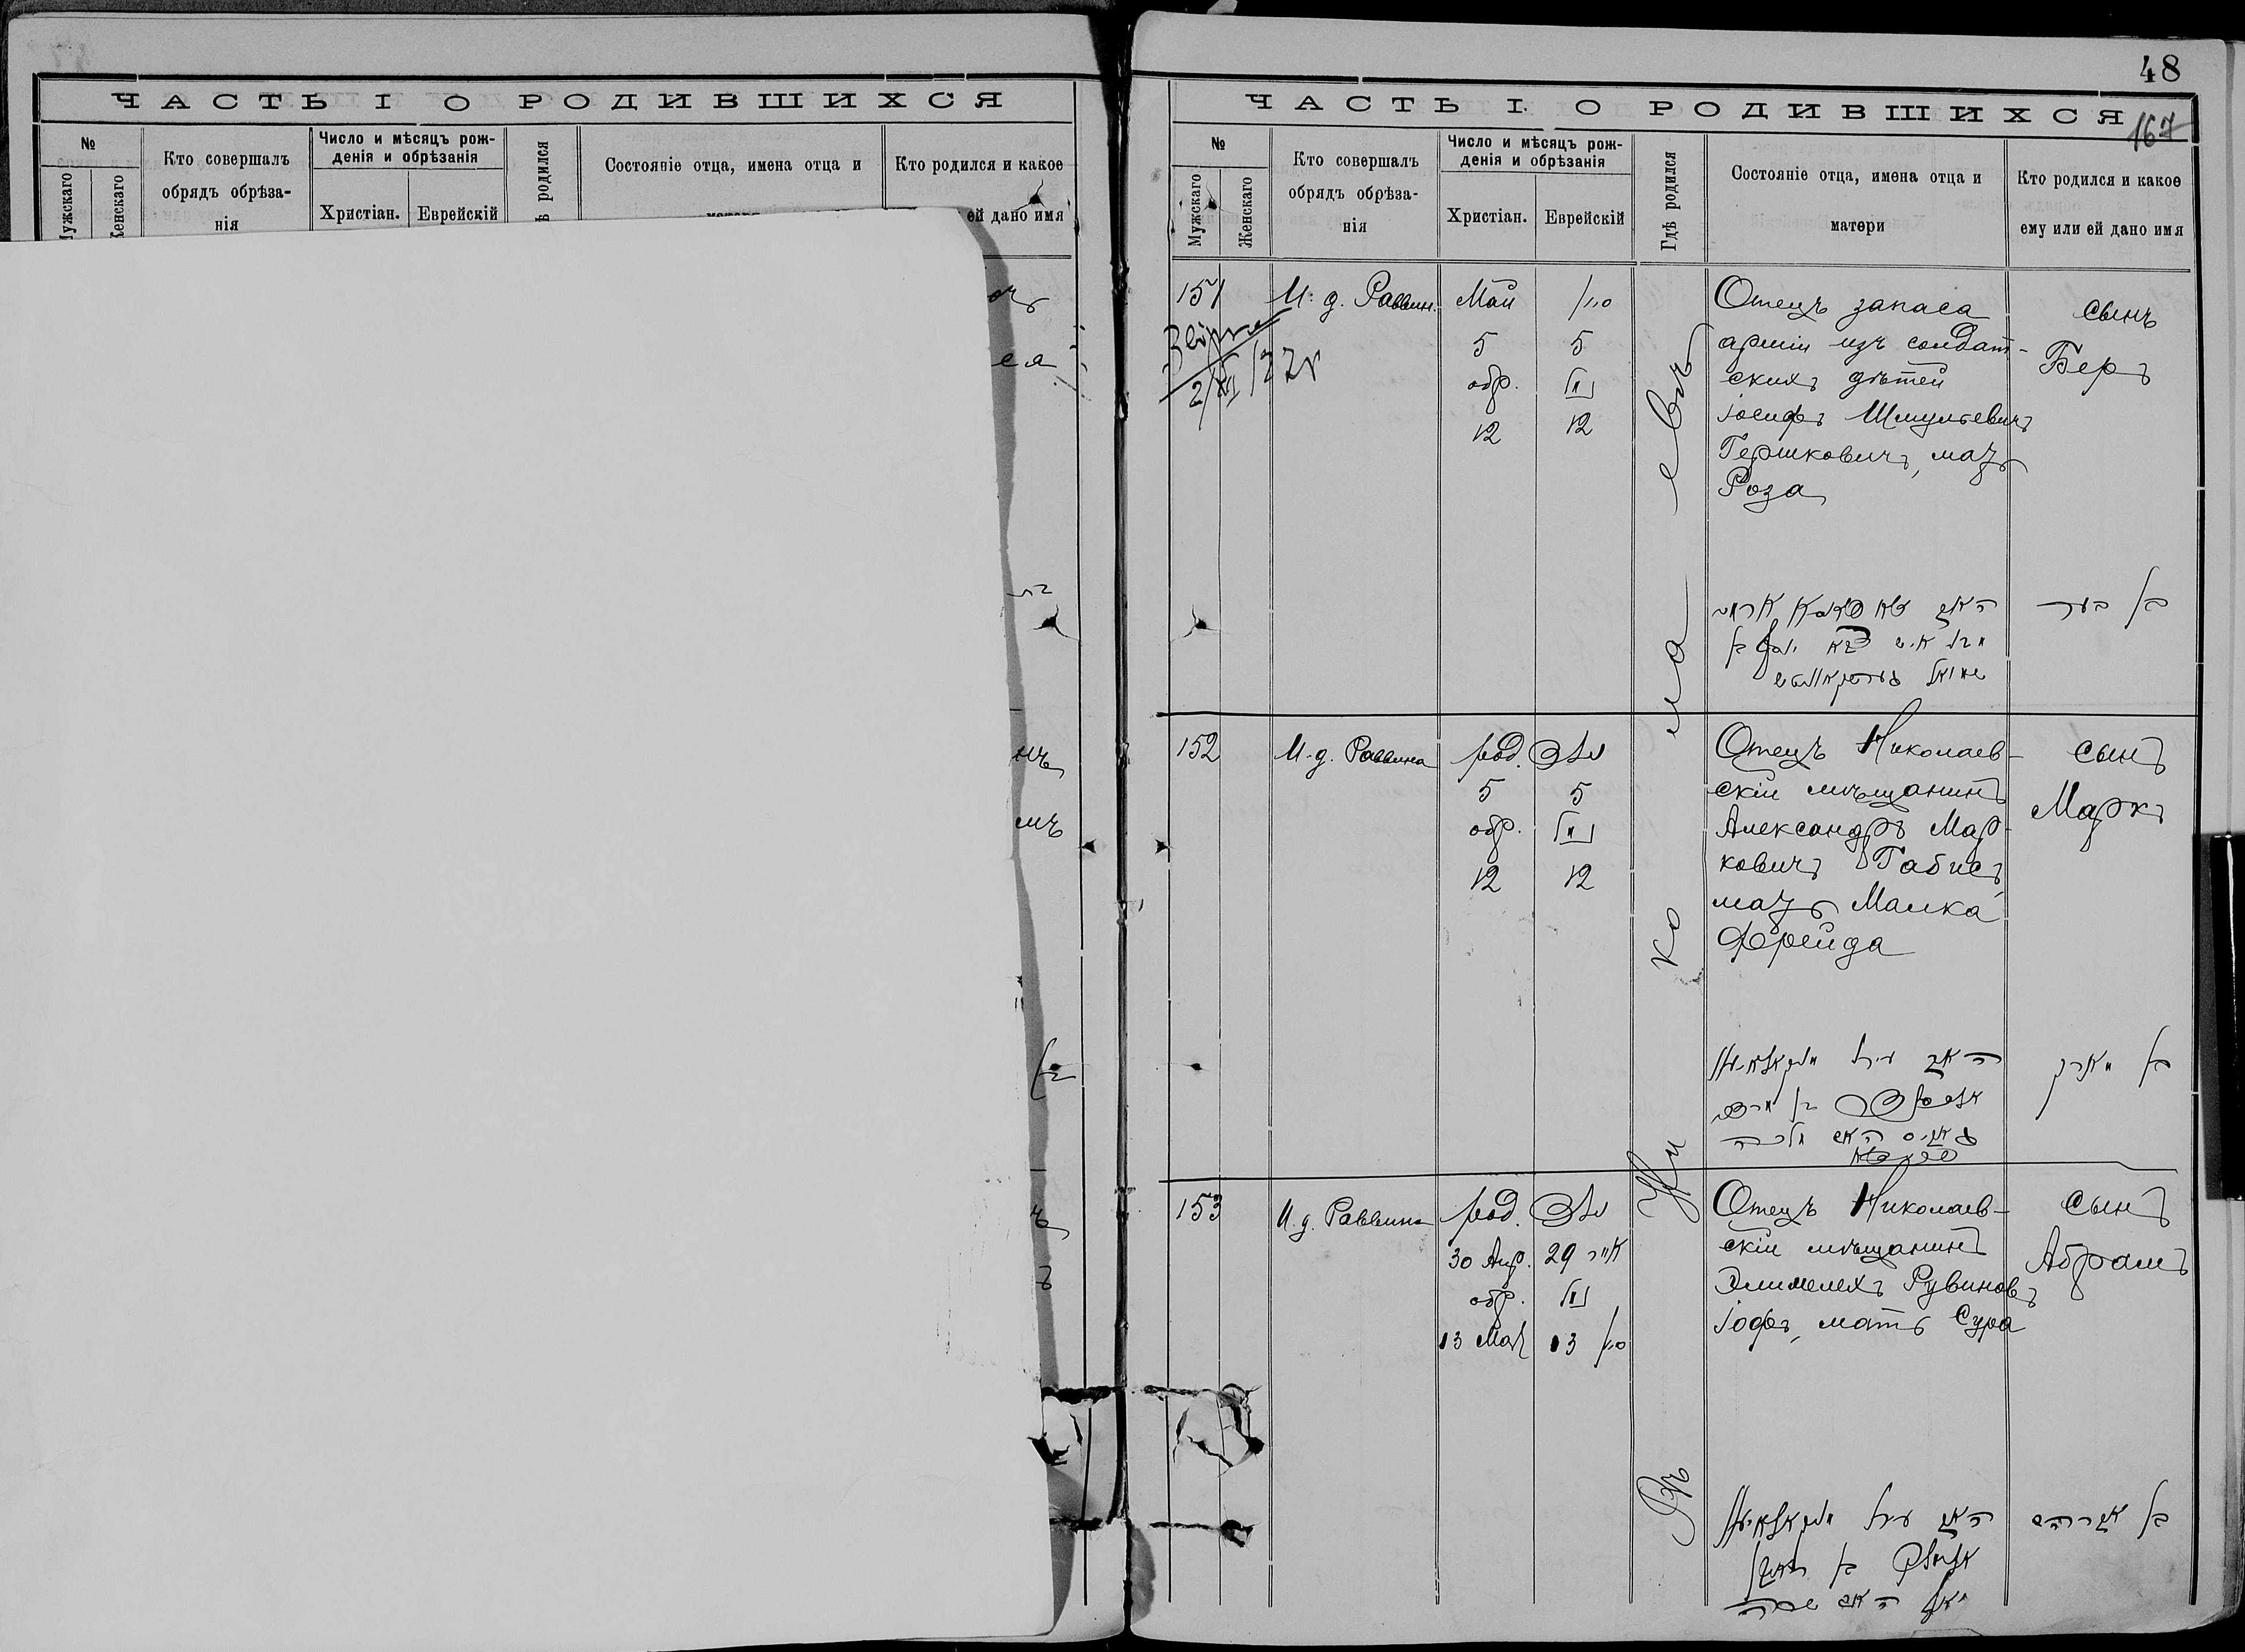 ЧАСТЬ I О РОДИВШИХСЯ
№
Мужскаго
Женскаго
Кто совершалъ
обрядъ обрѣза-
нія
Число и мѣсяцъ рож-
денія и обрѣзанія
Христіан.
Еврейскій
родился
Состояніе отца, имена отца и
Кто родился и какое
ей дано имя
48
ЧАСТЬ I. О РОДИВШИХСЯ
167
№
Мужскаго
Женскаго
Кто совершалъ
обрядъ обрѣза-
нія
Число и мѣсяцъ рож-
денія и обрѣзанія
Христіан.
Еврейскій
Гдѣ родился
Состояніе отца, имена отца и
матери
Кто родился и какое
ему или ей дано имя
Въ Николаевѣ
151
И. д. Раввин.
Май
5
обр.
12
סיון
5
נימול
12
Отецъ запаса
арміи изъ солдат-
скихъ дѣтей
Іосифъ Шмулевичъ
Гершковичъ, мать
Роза
сынъ
Беръ
בן בער
152
И. д. Раввина
род.
5
обр.
12
נולד
5
נימול
12
Отецъ Николаев-
скій мѣщанинъ
Александръ Мар-
ковичъ Габисъ,
мать Малка
Фрейда
сынъ
Маркъ
האב עיר ניקאלאיעוו
האם מלכה
בן מארק
153
И. д. Раввина
род.
30 Апр.
обр.
13 Мая
נולד
29 אייר
נימול
13 סיון
Отецъ Николаев-
скій мѣщанинъ
Элимелехъ Рувиновъ
Іофъ, мать Сура
сынъ
Абрамъ
האב עיר ניקאלאיעוו
אלימלך בן ראובן
יאף האם שרה
בן אברהם